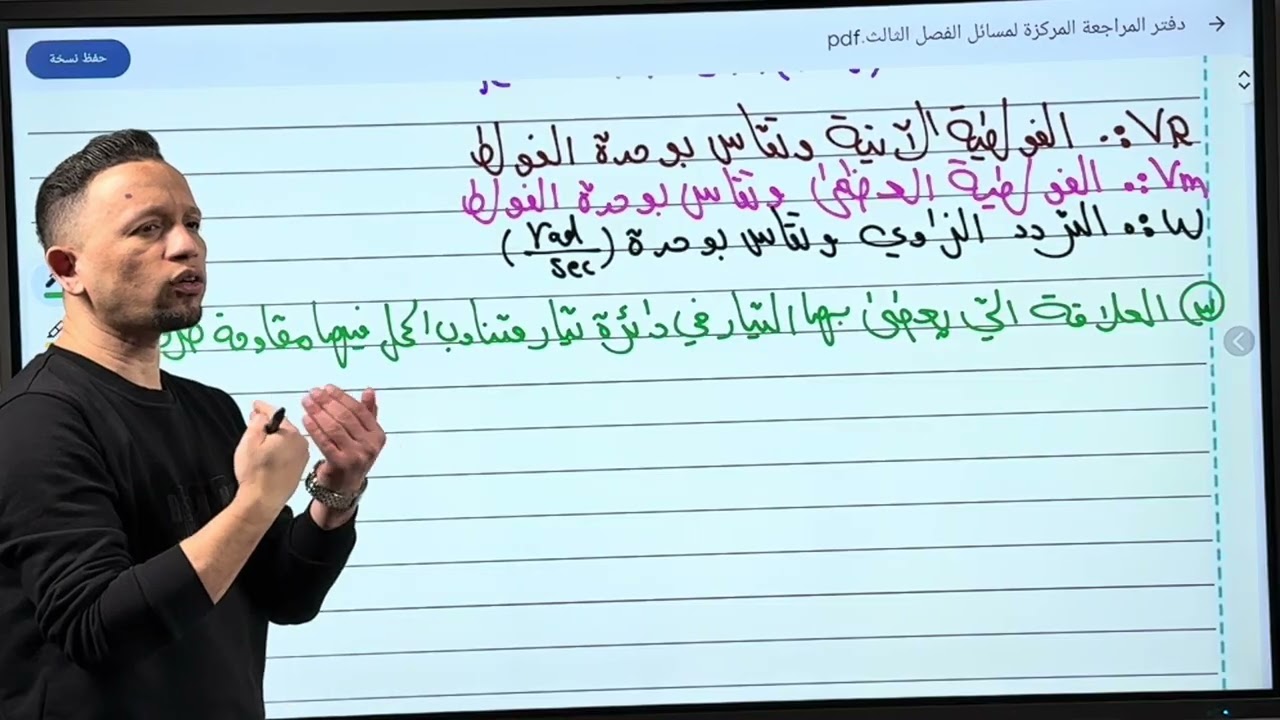 دفتر المراجعة المركزة لمسائل الفصل الثالث.pdf
حفظ نسخة
VR :. الفولطية الآنية وتقاس بوحدة الفولط
Vm :. الفولطية العظمى وتقاس بوحدة الفولط
W :. التردد الزاوي وتقاس بوحدة (rad/sec)
س العلاقة التي يعطى بها التيار في دائرة تيار متناوب الحمل فيها مقاومة صرف